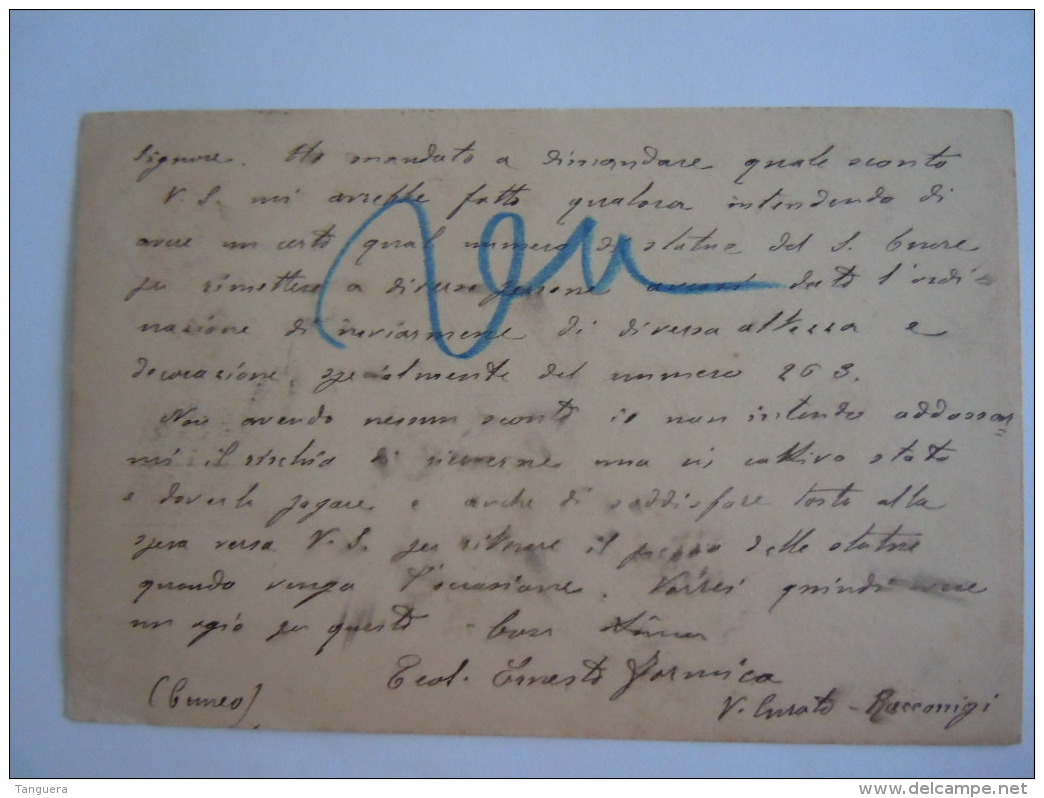 Signore. Ho mandato a dimandare quale sconto
V. S. mi avrebbe fatto qualora intendendo di
avere un certo qual numero di statue del S. Cuore
per rimettere a diverse persone avessi dato l'ordi-
nazione di inviarmene di diversa altezza e
decorazione, specialmente del numero 263.
Non avendo nessun sconto io non intendo addossar=
mi il rischio di riceverne una in cattivo stato
e doverla pagare e anche di soddisfare tosto alla
spesa verso V. S. per ritenere il prezzo delle statue
quando venga l'occasione. Vorrei quindi
un agio per questo
Teol. Ernesto Formica
(Cuneo) V. Curato - Racconigi
Tanguera
delcampe.net